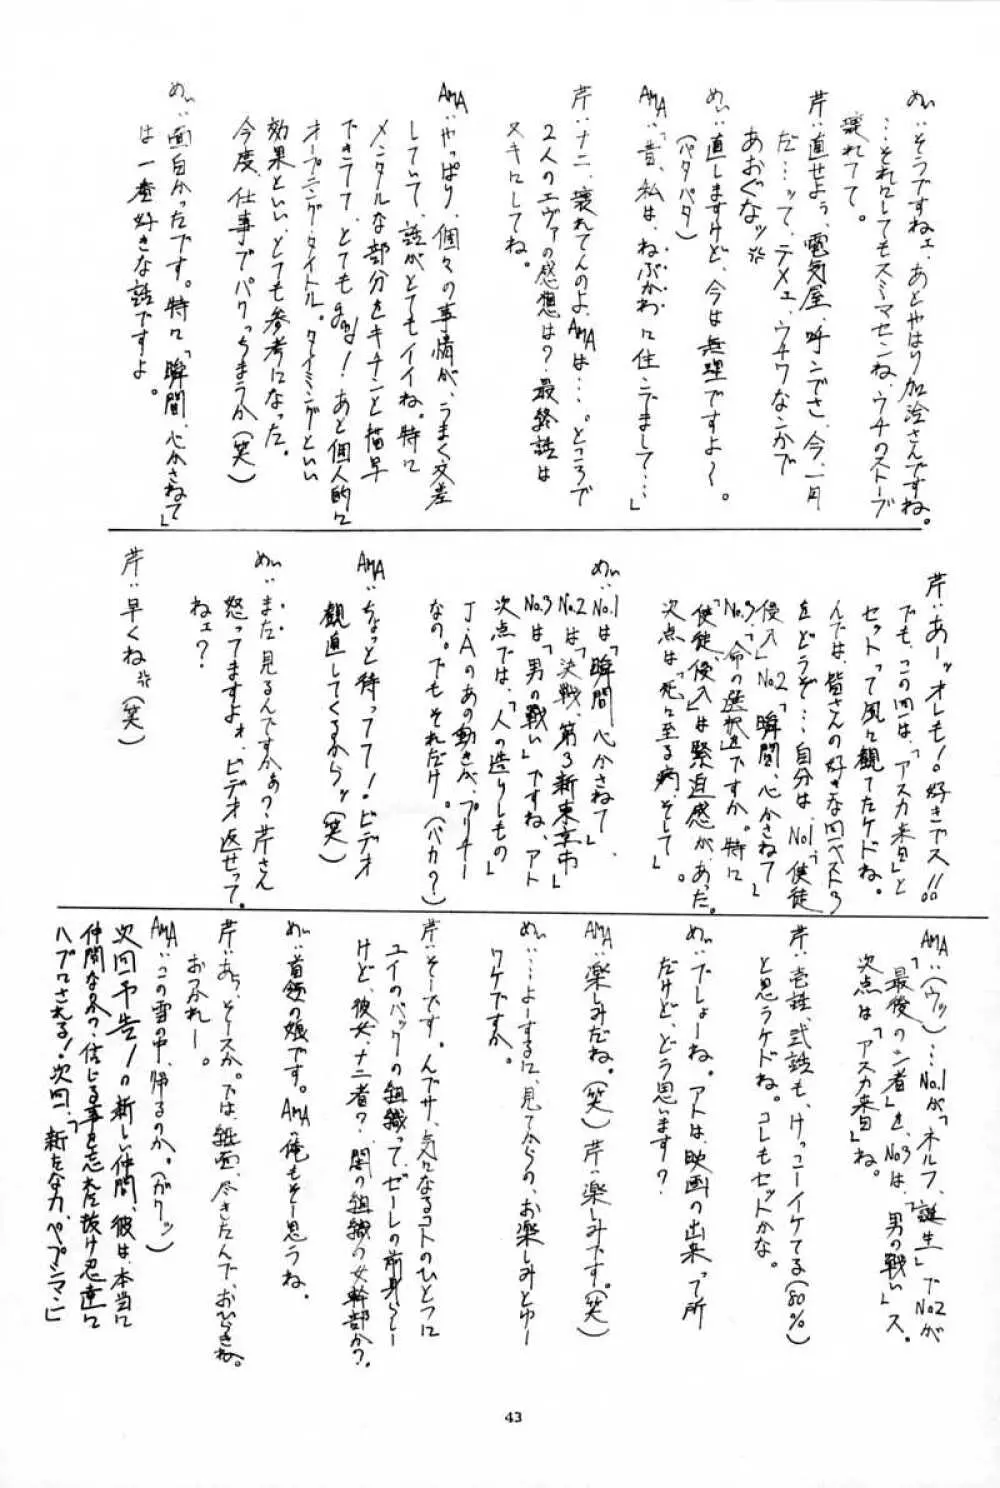 めぃ:そうですねェ、あとやはり加治さんですね。
…それにしてもスミマセンね、ウチのストーブ
壊れてて。
芹:直せよぅ、電気屋、呼ンでさ、今、一月
だ…って、テメェ、ウチワなんかで
あおぐなッ
めぃ:直しますけど、今は無理ですよ〜。
(パタパタ)
AMA:「昔、私は、ねぶかわに住ンでまして…」
芹:ナニ、壊れてんのよ、AMAは…。ところで
2人のエヴァの感想は?最終話は
ヌキにしてね。
AMA:やっぱり、個々の事情が、うまく交差
していて、話がとてもイイね。特に
メンタルな部分をキチンと描
できてて、とてもgood!あと個人的に
オープニング・タイトル。タイミングといい
効果といい、とても参考になった。
今度、仕事でパクっちまうか(笑)
めぃ:面白かったです。特に「瞬間、心かさねて」
は一番好きな話ですよ。
芹:あーッオレも!好きでス!!
でも、この回は、「アスカ来日」と
セットって風に観てたケドね。
んでは、皆さんの好きな回ベスト3
をどうぞ…自分は、No.1「使徒
侵入」No.2「瞬間、心かさねて」
No.3、「命の選択を」ですか。特に
「使徒、侵入」は緊迫感が、あった。
次点は「死に至る病、そして」。
めぃ:No.1は「瞬間、心かさねて」
No.2は「決戦、第3新東京市」
No.3は「男の戦い」ですね、アト
次点では、「人の造りしもの」
J・Aのあの動きが、プリチー
なの。でもそれだけ。(バカ?)
AMA:ちょっと待ってて!ビデオ
観直してくるからッ(笑)
めぃ:まだ見るんですかぁ?芹さん
怒ってますよォ、ビデオ返せって。
ねェ?
芹:早くね(笑)
AMA:(ウッ)…No.1が「ネルフ、誕生」でNo.2が
「最後のシ者」を、No.3は、「男の戦い」ス。
次点は「アスカ来日」ね。
芹:壱話、弐話も、けっこーイケてる(80%)
と思うケドね。コレもセットかな。
めぃ:でしょーね。アトは、映画の出来って所
だけど、どう思います?
AMA:楽しみだね。(笑)芹:楽しみです。(笑)
めぃ:…よーするに、見てからの、お楽しみとゆー
ワケですか。
芹:そーです。んでサ、気になるコトのひとつに
ユイのバックの組織って、ゼーレの前身らしー
けど、彼女、ナニ者?闇の組織の女幹部か?
めぃ:首領の娘です。AMA:俺もそー思うね。
芹:あら、そースか。では、紙面、尽きたんで、おひらきね。
おつかれー。
AMA:この雪の中、帰るのか。(ガクッ)
次回予告!の新しい仲間、彼は、本当に
仲間なのか、信じる事を忘れた抜け忍達に
ハブロされる!次回、「新たな力、ペプシマン」
43